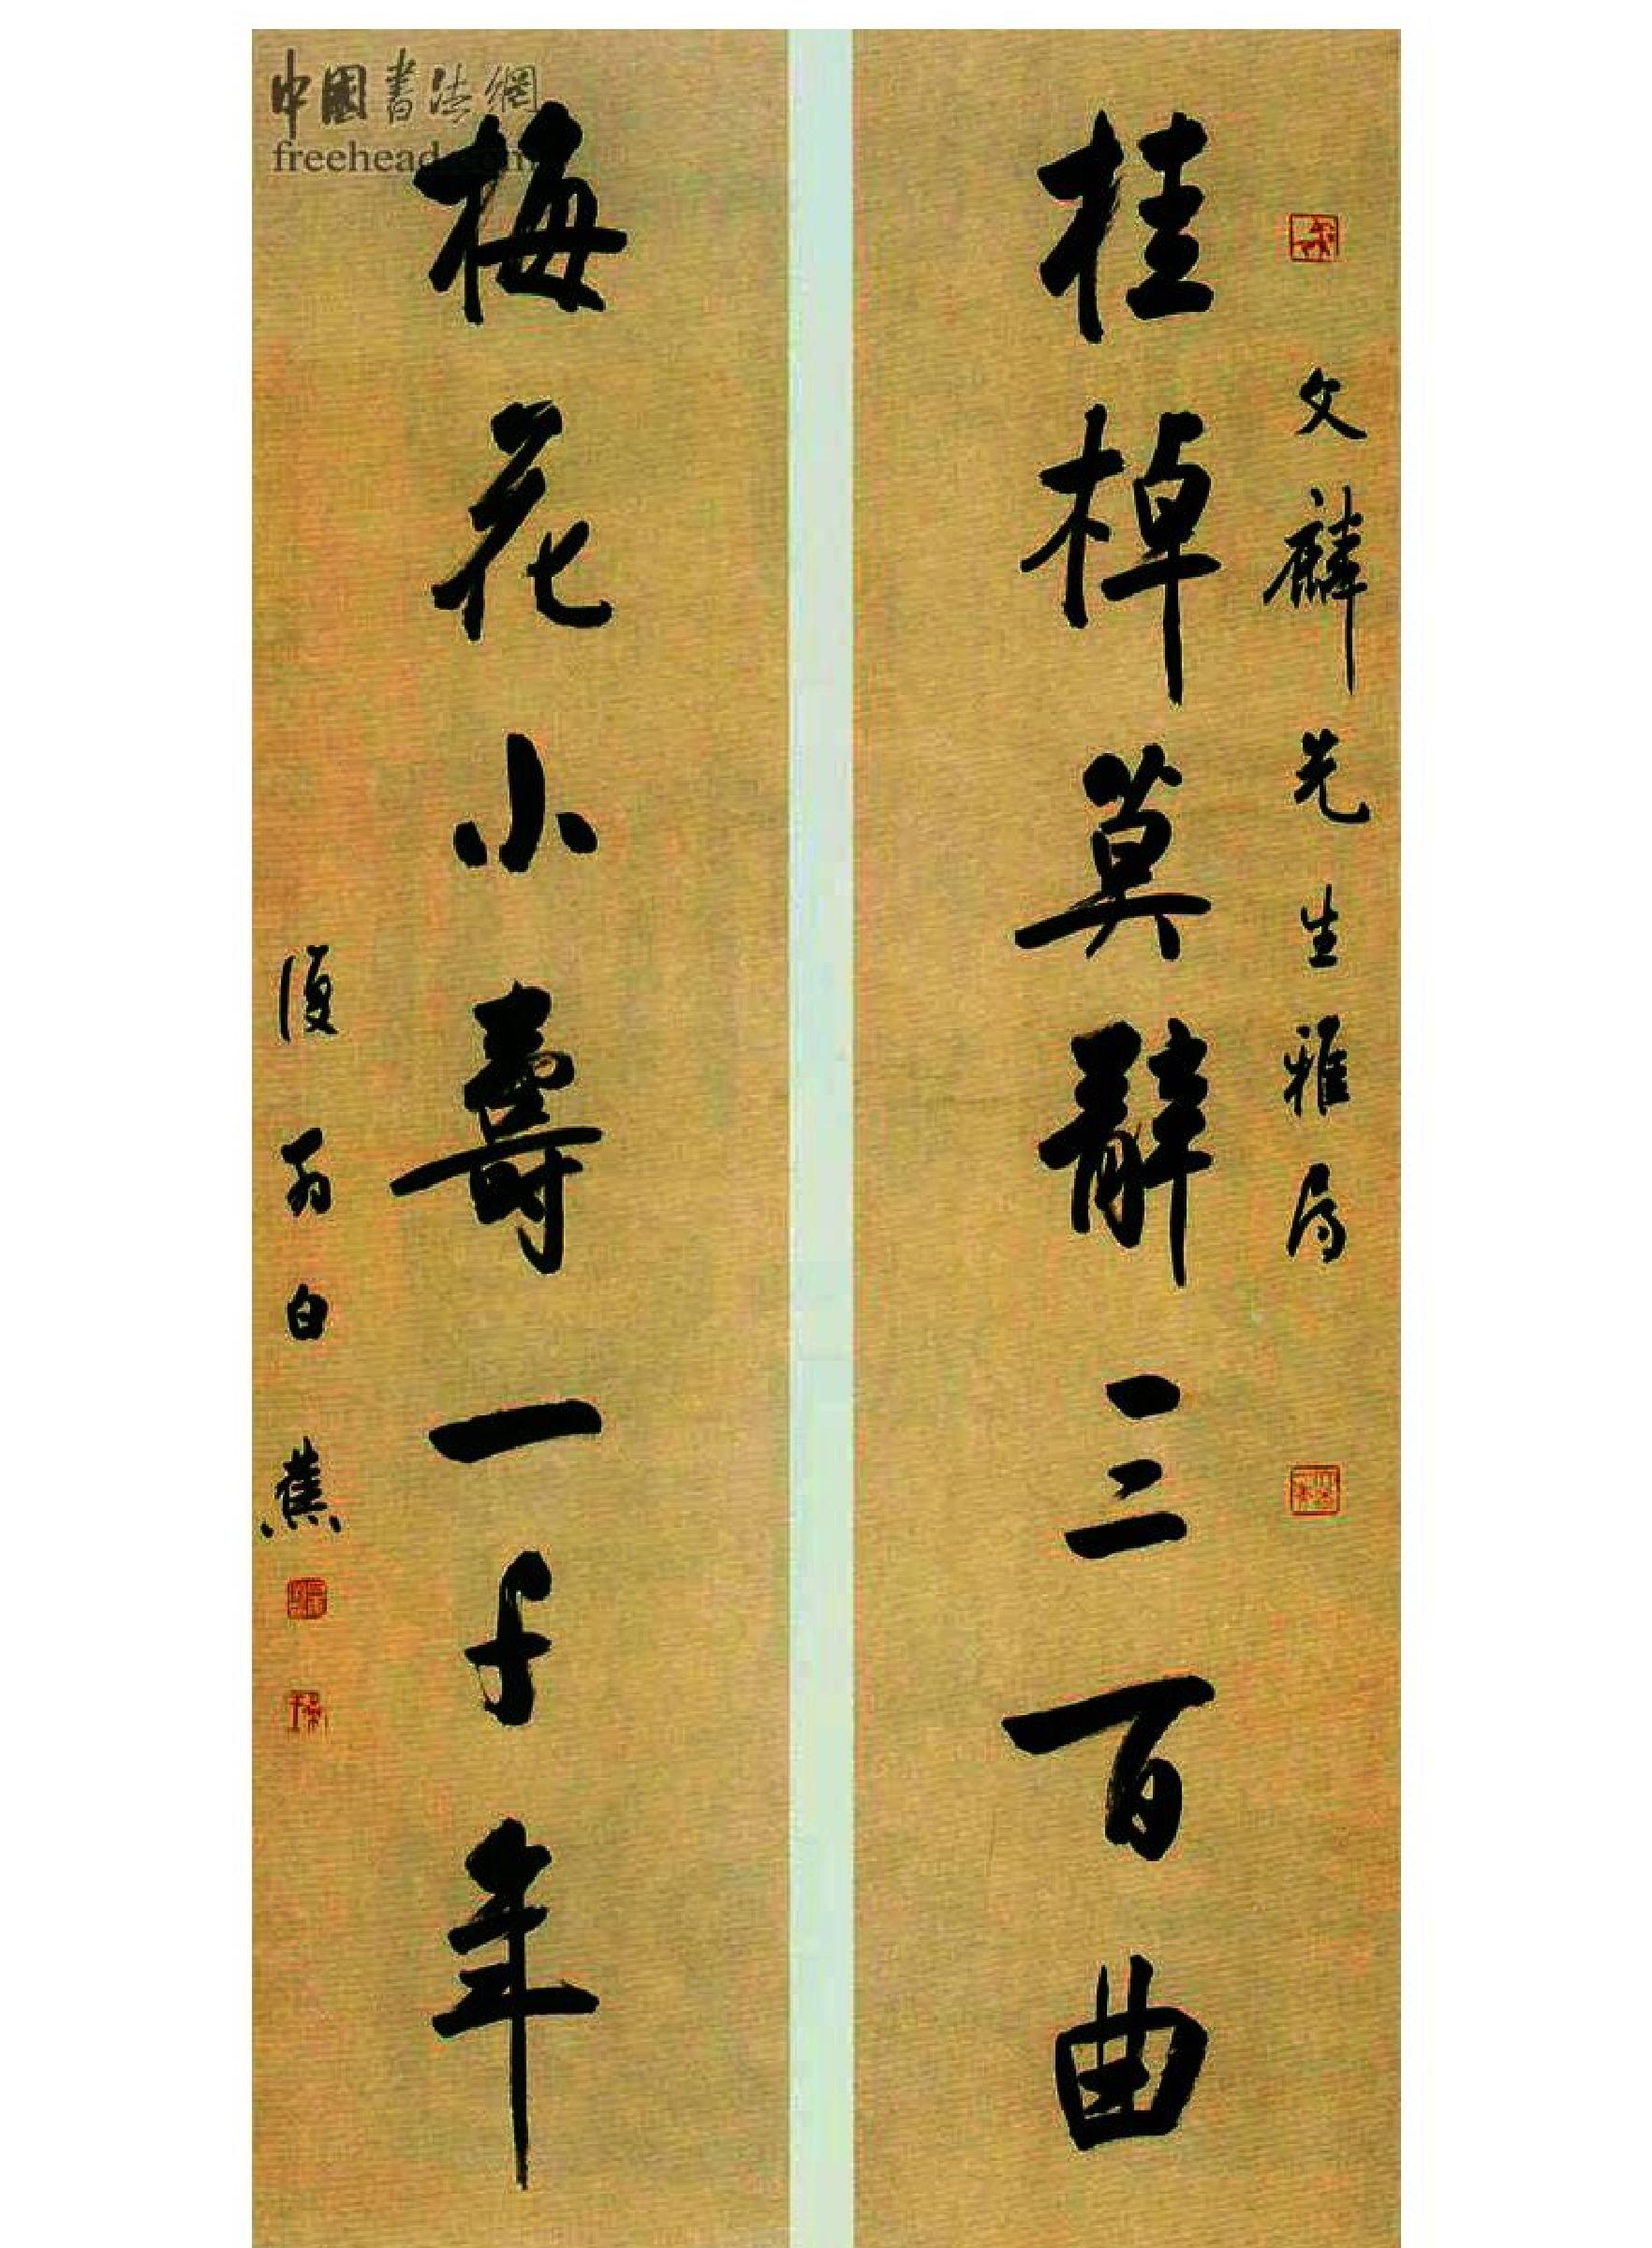 文麟先生雅屬
桂棹莫辭三百曲
梅花小壽一千年
復翁白蕉
中國書法網
freehead.com